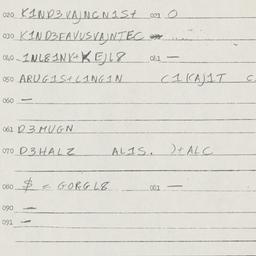 020 K1ND3VAJNCN1S+ 021 O
030 K1ND3FAVUSVAJNTEC
040 .1NL81NK+KEJL8 041 —
050 ARUG1S+L1NG1N C1(AJ1T
060 —
061 D3MUGN
070 D3HALZ AL1S. )+ALC
080 $ = GORGL8 081 —
090 —
091 —